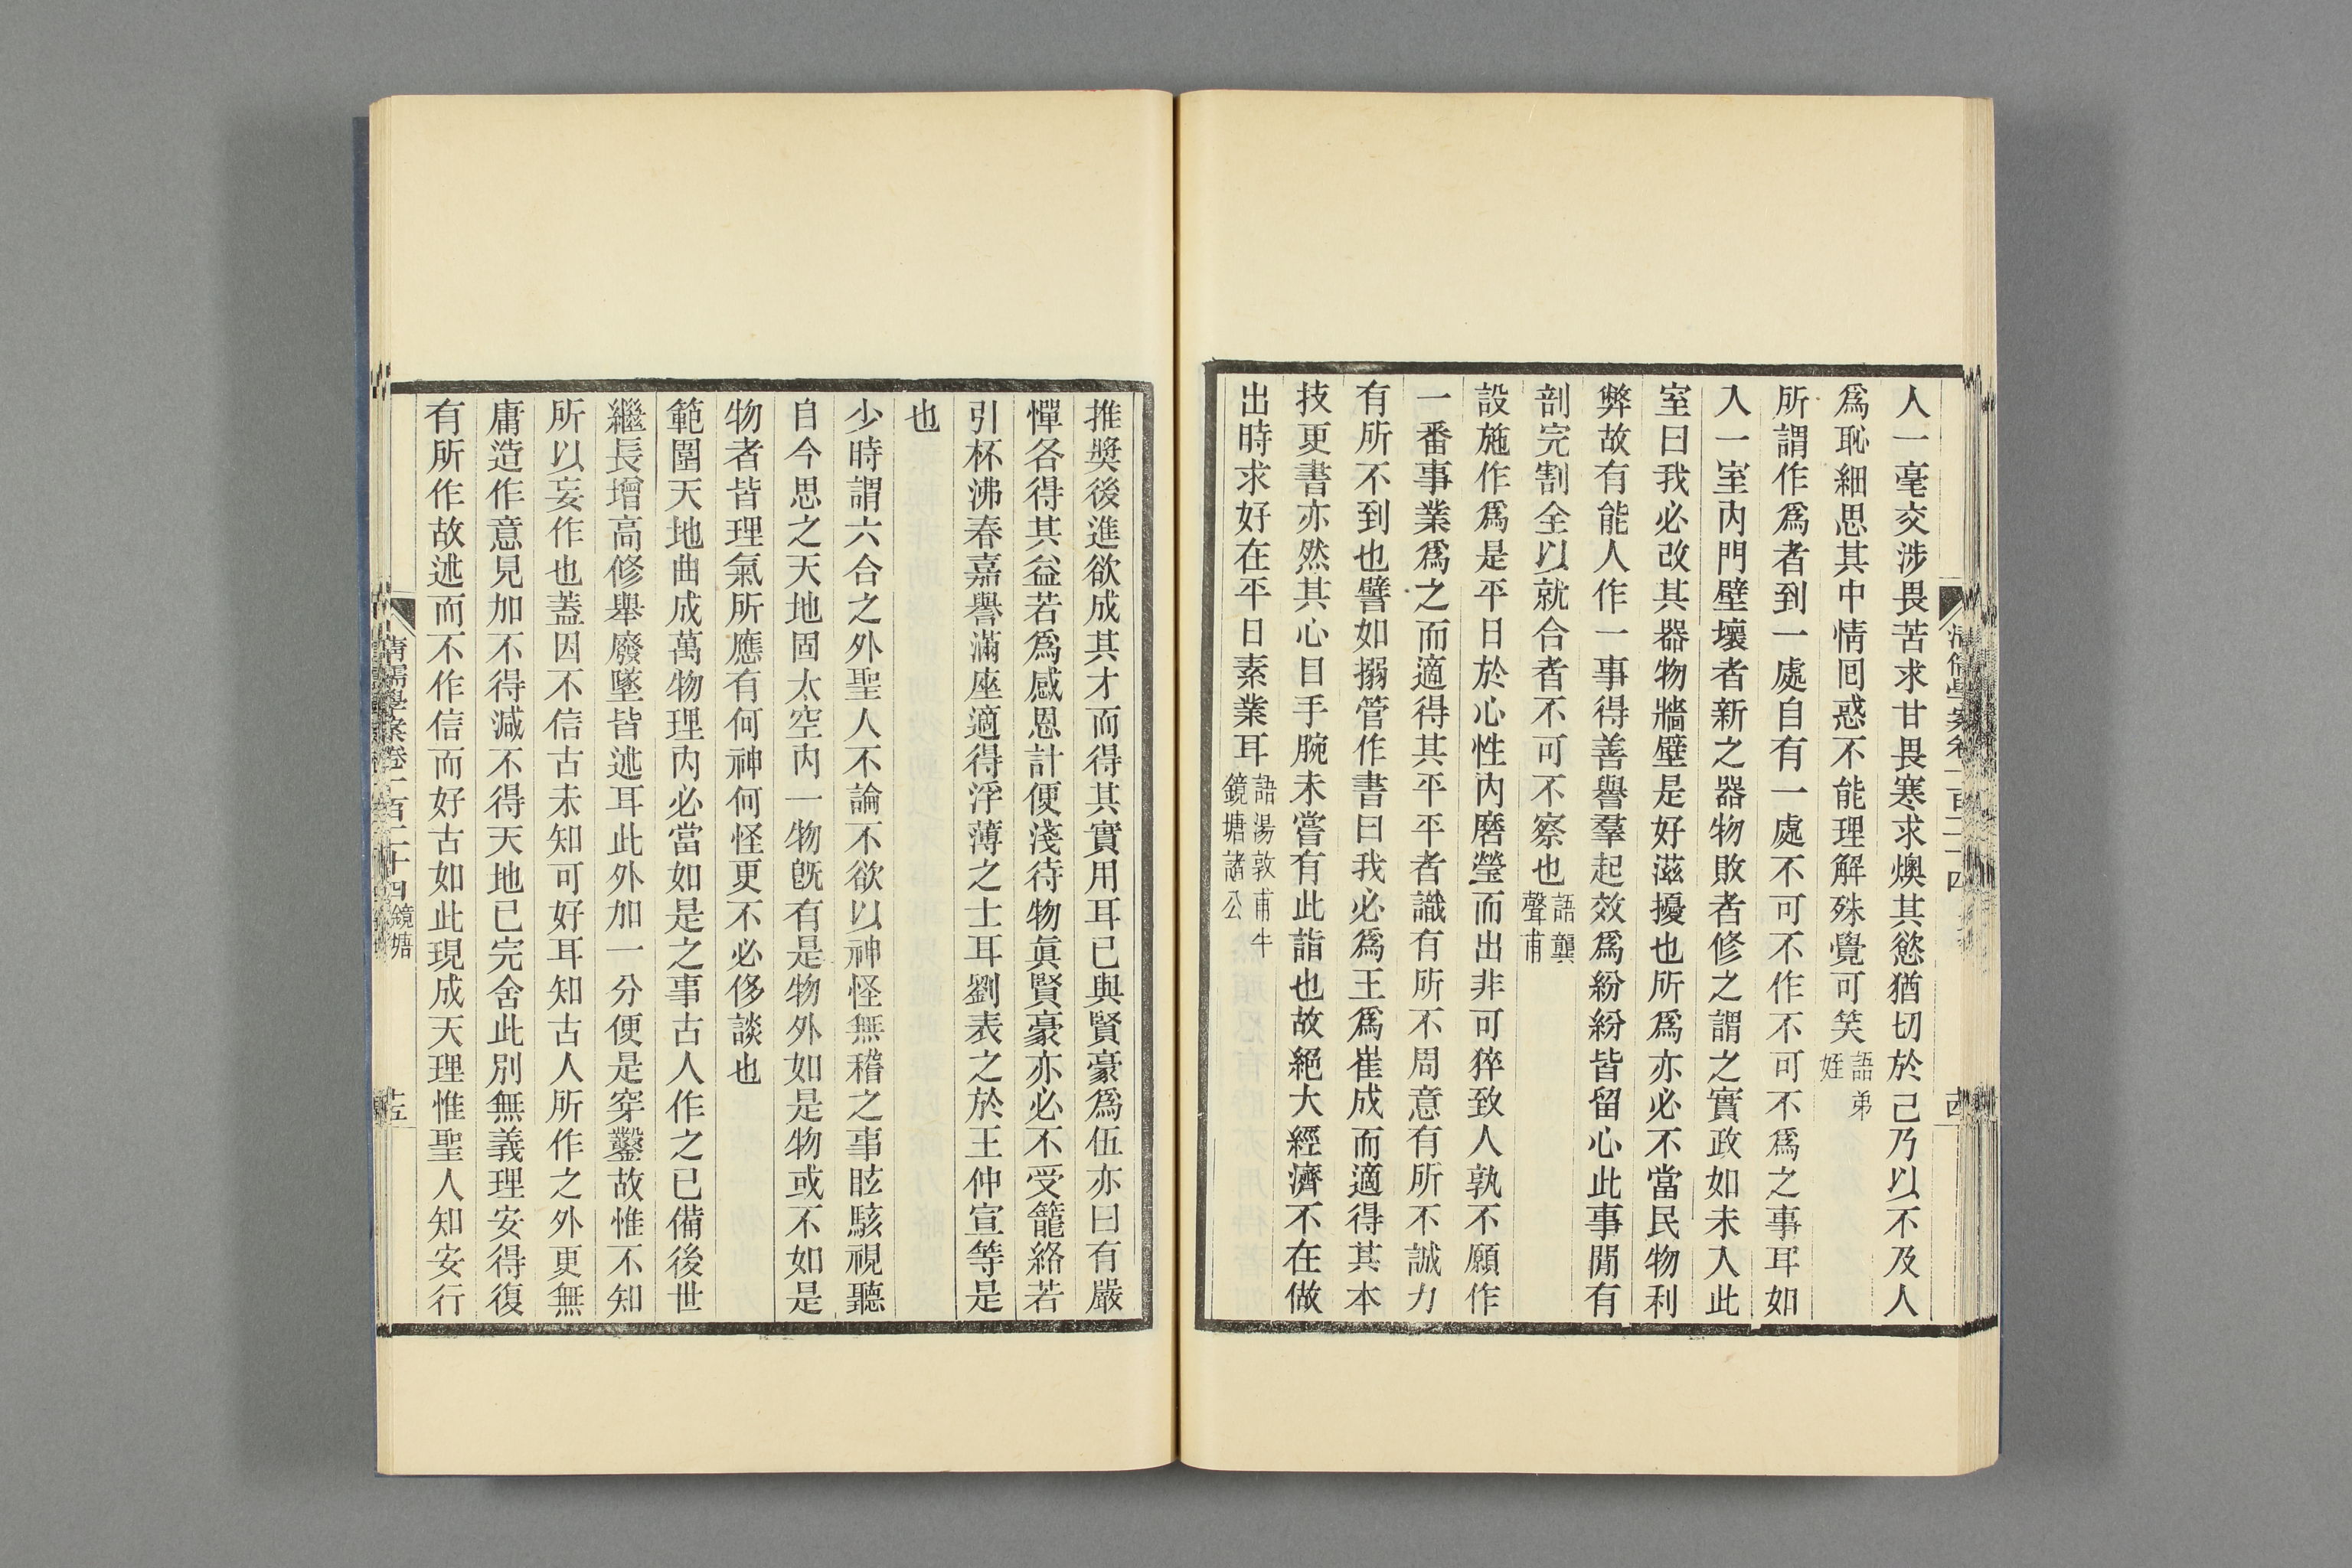 人一毫交涉畏苦求甘畏寒求燠其慾猶切於己乃以不及人
爲恥細思其中情囘惑不能理解殊覺可笑語弟姪
所謂作爲者到一處自有一處不可不作不可不爲之事耳如
入一室內門壁壞者新之器物敗者修之謂之實政如未入此
室曰我必改其器物牆壁是好滋擾也所爲亦必不當民物利
弊故有能人作一事得善譽羣起效爲紛紛皆留心此事閒有
剖完割全以就合者不可不察也語龔聲甫
設施作爲是平日於心性內磨瑩而出非可猝致人孰不願作
一番事業爲之而適得其平平者識有所不周意有所不誠力
有所不到也譬如搦管作書曰我必爲王爲崔成而適得其本
技更書亦然其心目手腕未嘗有此詣也故絕大經濟不在做
出時求好在平日素業耳語湯敦甫牛鏡塘諸公
推奬後進欲成其才而得其實用耳已與賢豪爲伍亦曰有嚴
憚各得其益若爲感恩計便淺待物眞賢豪亦必不受籠絡若
引杯沸春嘉譽滿座適得浮薄之士耳劉表之於王仲宣等是
也
少時謂六合之外聖人不論不欲以神怪無稽之事眩駭視聽
自今思之天地固太空內一物旣有是物外如是物或不如是
物者皆理氣所應有何神何怪更不必侈談也
範圍天地曲成萬物理內必當如是之事古人作之已備後世
繼長增高修舉廢墜皆述耳此外加一分便是穿鑿故惟不知
所以妄作也蓋因不信古未知可好耳知古人所作之外更無
庸造作意見加不得減不得天地已完舍此別無義理安得復
有所作故述而不作信而好古如此現成天理惟聖人知安行
清儒學案卷一百二十四 鏡塘 十五